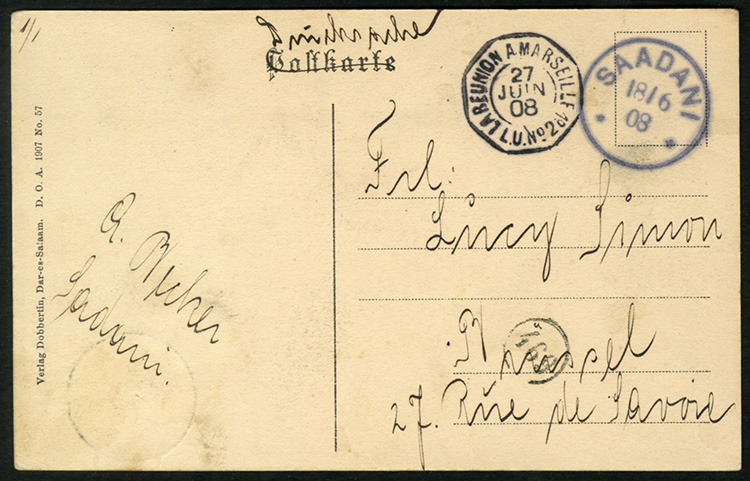 1/1
Drucksache
Postkarte
LA REUNION A MARSEILLE
27
JUIN
08
L.U. No 2
SAADANI
18/6
08
Frl:
Lucy Simon
Brüssel
27. Rue de Savoie
A. Becker
Sadani.
Verlag Dobbertin, Dar-es-Salaam. D. O. A. 1907 No. 57